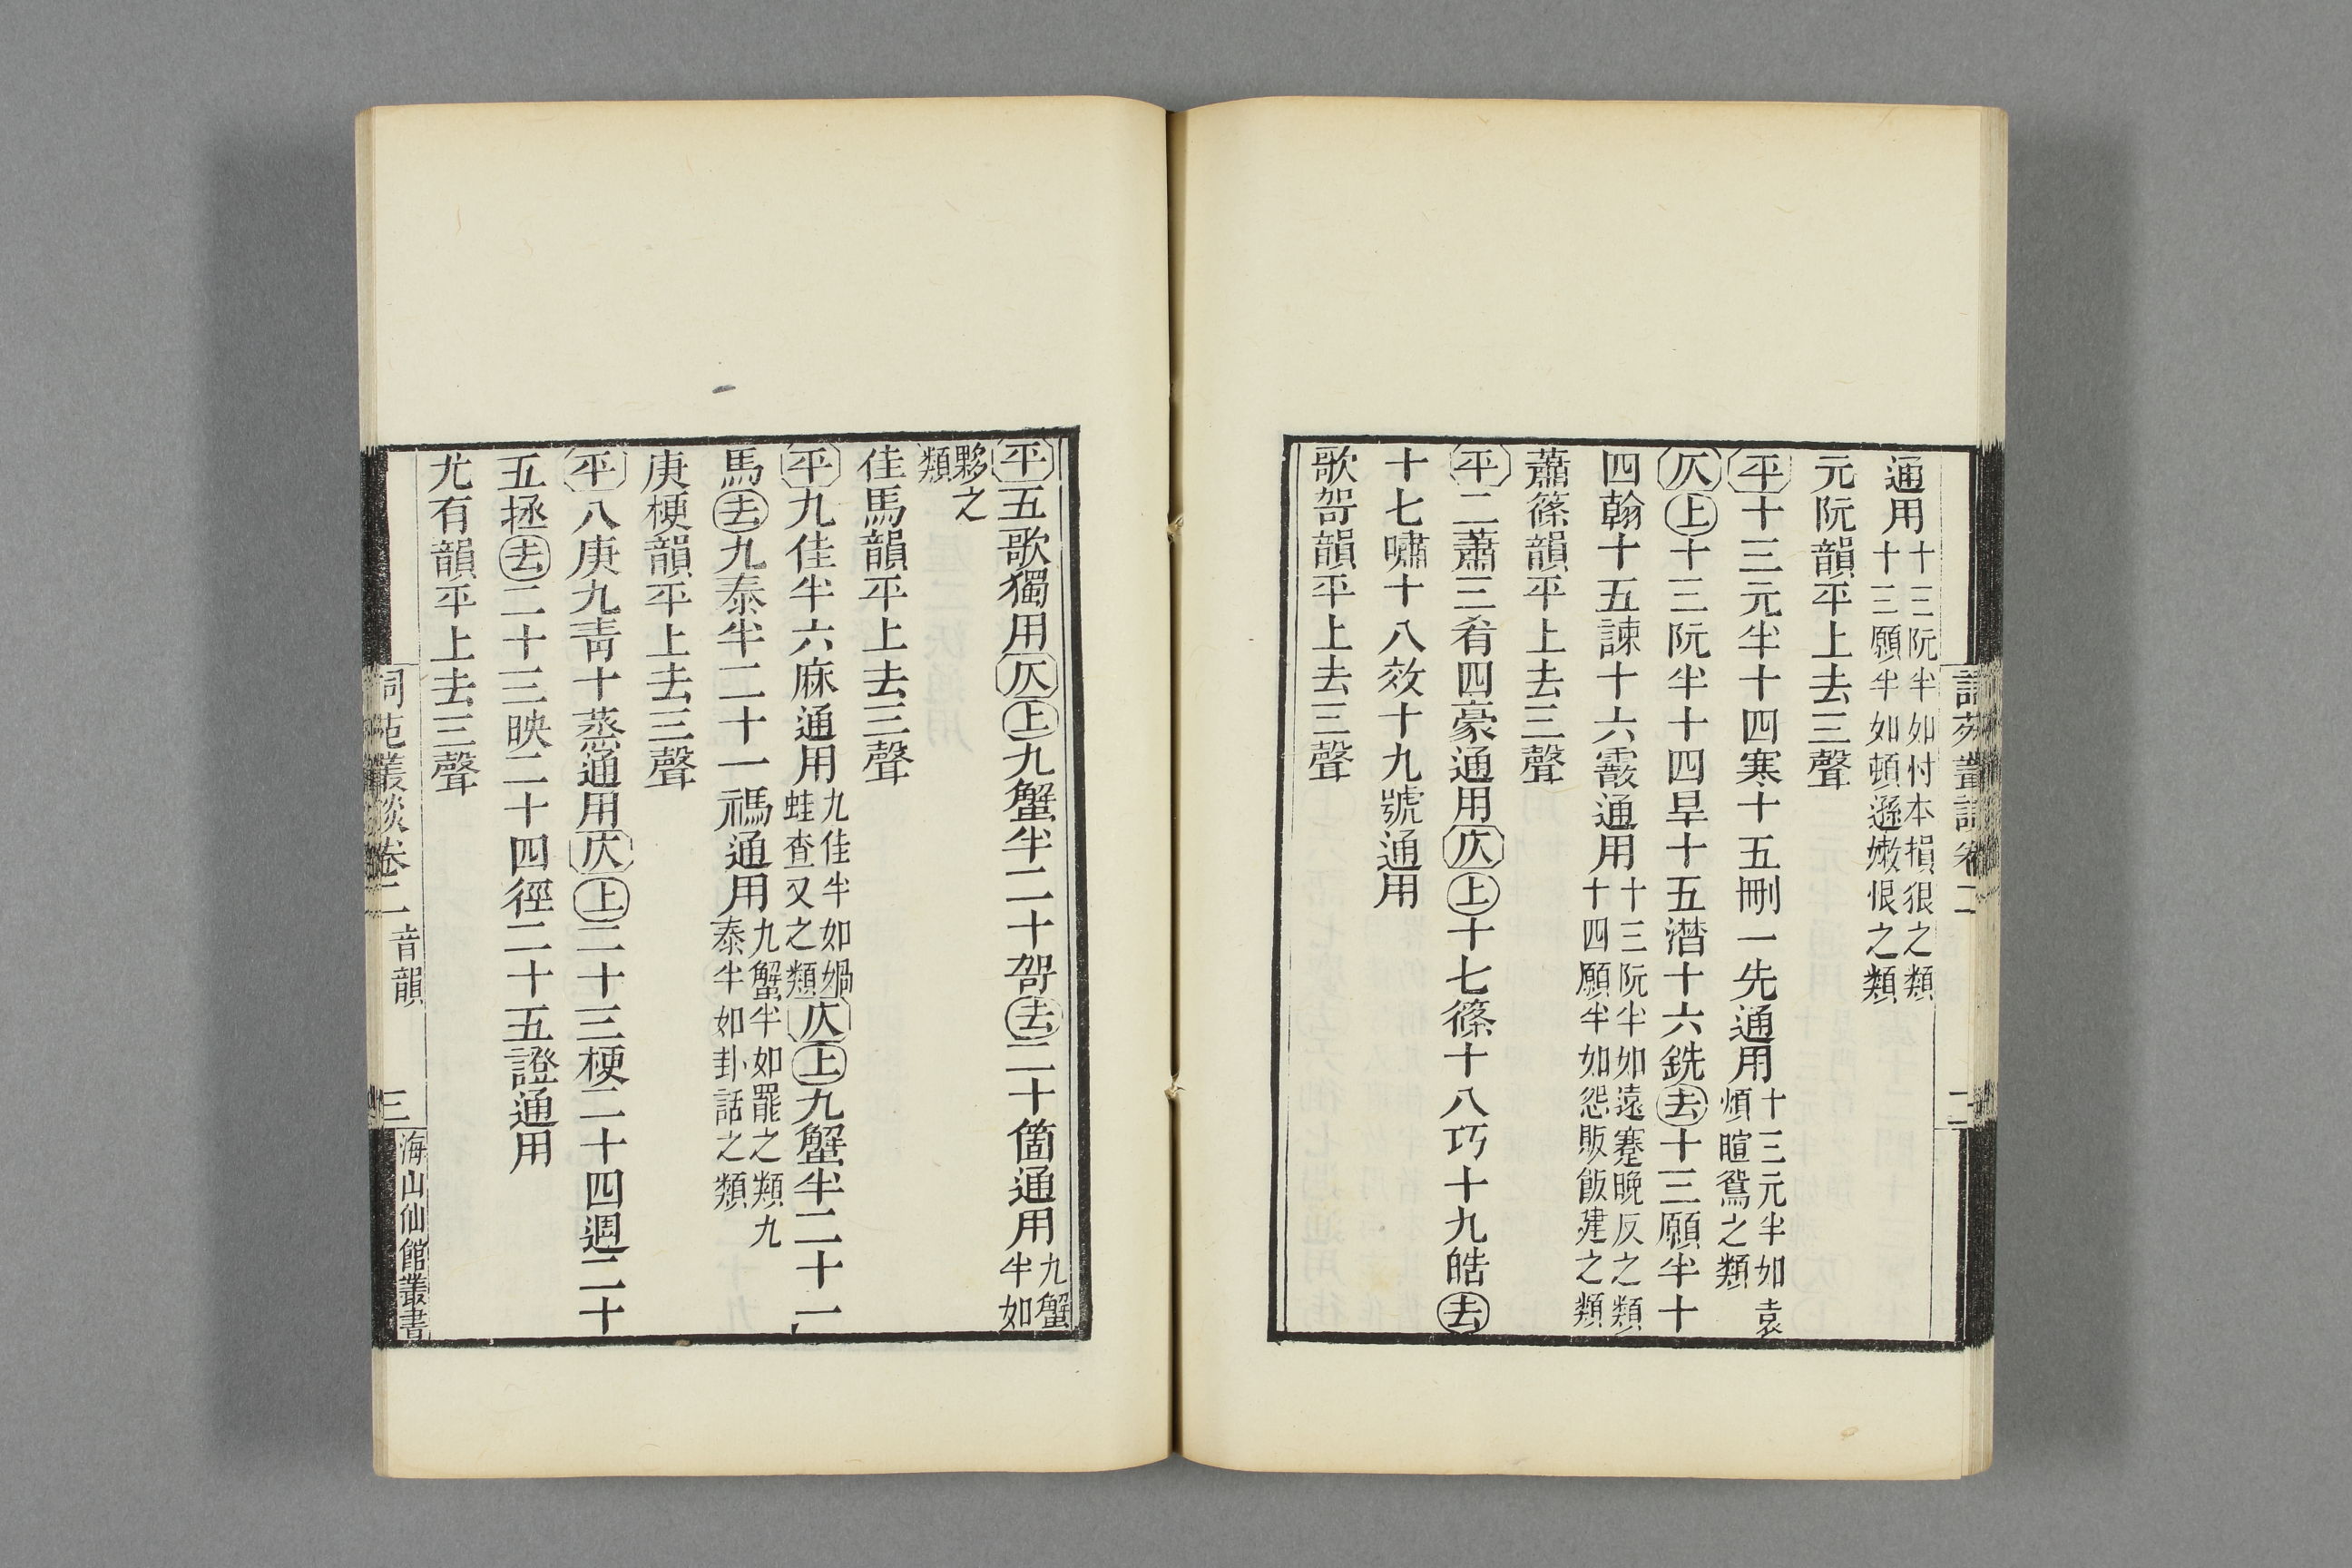 通用十三阮半如忖本損狠之類十三願半如頓遜嫩恨之類
元阮韻平上去三聲
平十三元半十四寒十五刪一先通用十三元半如袁煩暄鴛之類
仄上十三阮半十四旱十五潸十六銑去十三願半十
四翰十五諫十六霰通用十三阮半如遠蹇晚反之類十四願半如怨販飯建之類
蕭篠韻平上去三聲
平二蕭三肴四豪通用仄上十七篠十八巧十九皓去
十七嘯十八效十九號通用
歌哿韻平上去三聲
平五歌獨用仄上九蟹半二十哿去二十箇通用九蟹半如
夥之類
佳馬韻平上去三聲
平九佳半六麻通用九佳半如媧蛙查叉之類仄上九蟹半二十一
馬去九泰半二十一禡通用九蟹半如罷之類九泰半如卦話之類
庚梗韻平上去三聲
平八庚九青十蒸通用仄上二十三梗二十四迥二十
五拯去二十三映二十四徑二十五證通用
尤有韻平上去三聲
詞苑叢談卷二 音韻 三 海山仙館叢書